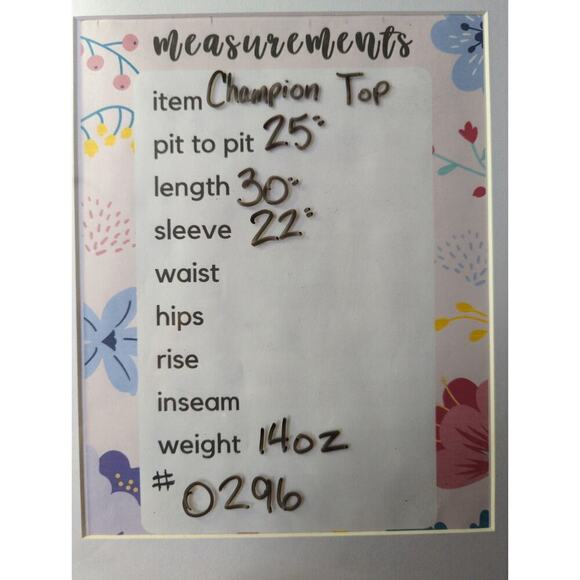 measurements
item Champion Top
pit to pit 25"
length 30"
sleeve 22"
waist
hips
rise
inseam
weight 14oz
# 0296